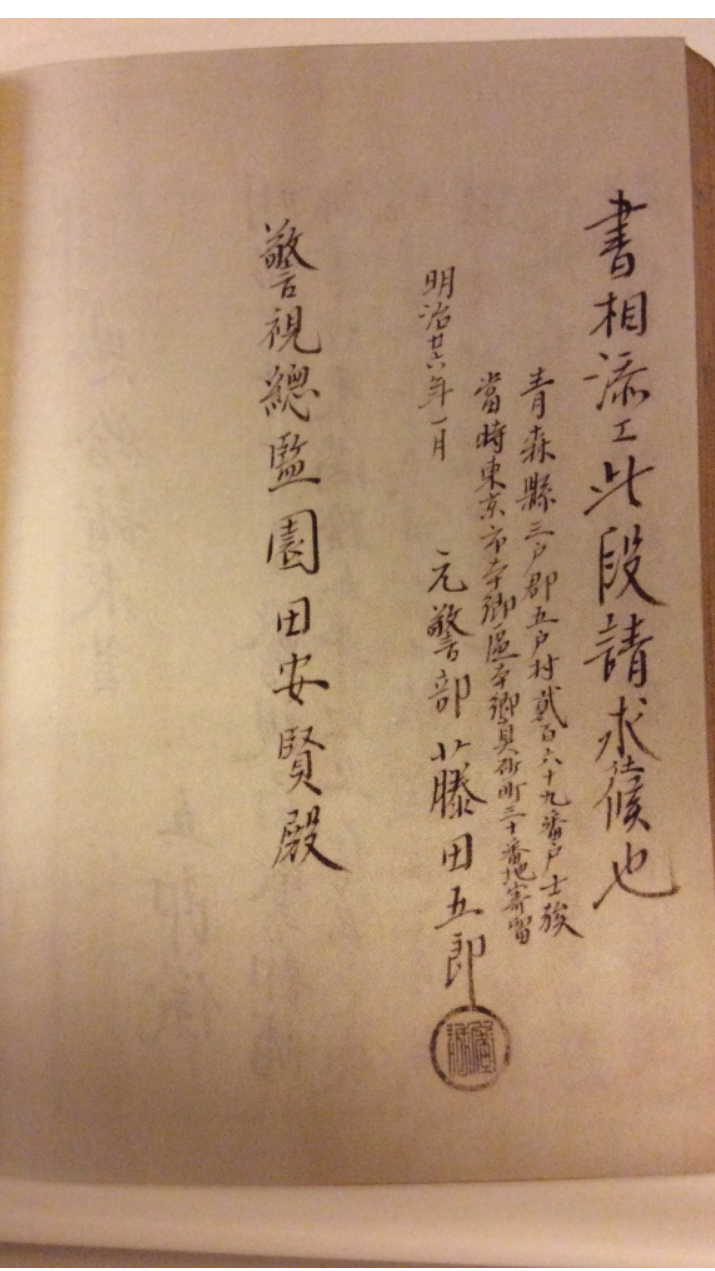 書相添エ此段請求仕候也
青森縣三戸郡五戸村貳百六十九番戸士族
當時東京市本郷區本郷真砂町三十番地寄留
明治廿六年一月
元警部 藤田五郎
警視總監園田安賢殿